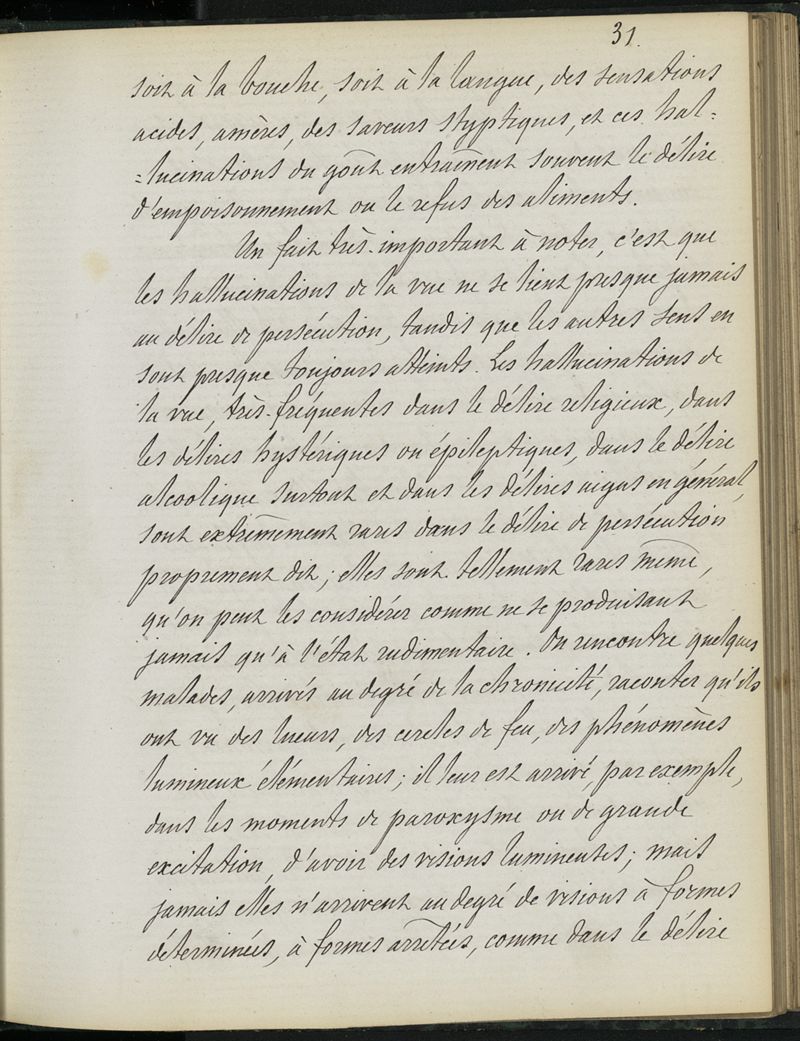 31.
soit à la bouche, soit à la langue, des sensations
acides, amères, des saveurs styptiques, et ces hal=
=lucinations du goût entraînent souvent le délire
d'empoisonnement ou le refus des aliments.
Un fait très-important à noter, c'est que
les hallucinations de la vue ne se lient presque jamais
au délire de persécution, tandis que les autres sens en
sont presque toujours atteints. Les hallucinations de
la vue, très-fréquentes dans le délire religieux, dans
les délires hystériques ou épileptiques, dans le délire
alcoolique surtout et dans les délires aigus en général,
sont extrêmement rares dans le délire de persécution
proprement dit; elles sont tellement rares même,
qu'on peut les considérer comme ne se produisant
jamais qu'à l'état rudimentaire. On rencontre quelques
malades, arrivés au degré de la chronicité, raconter qu'ils
ont vu des lueurs, des cercles de feu, des phénomènes
lumineux élémentaires; il leur est arrivé, par exemple,
dans les moments de paroxysme ou de grande
excitation, d'avoir des visions lumineuses; mais
jamais elles n'arrivent au degré de visions à formes
déterminées, à formes arrêtées, comme dans le délire